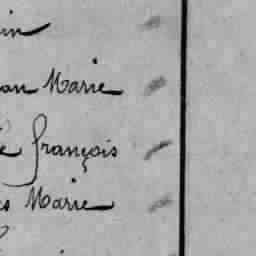 in
an Marie
e françois
s Marie